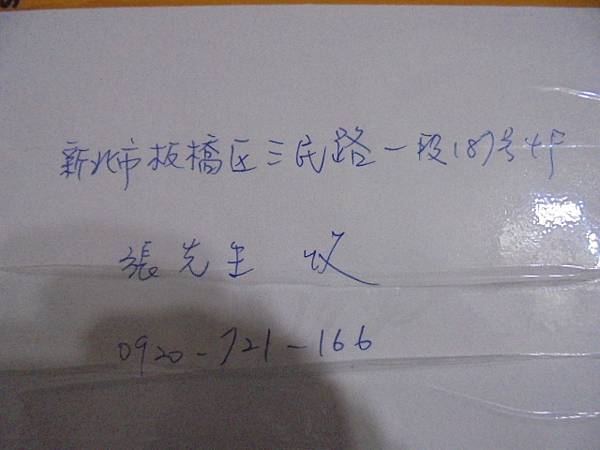 新北市板橋区三民路一段187号4F
張先生 收
0920-721-166